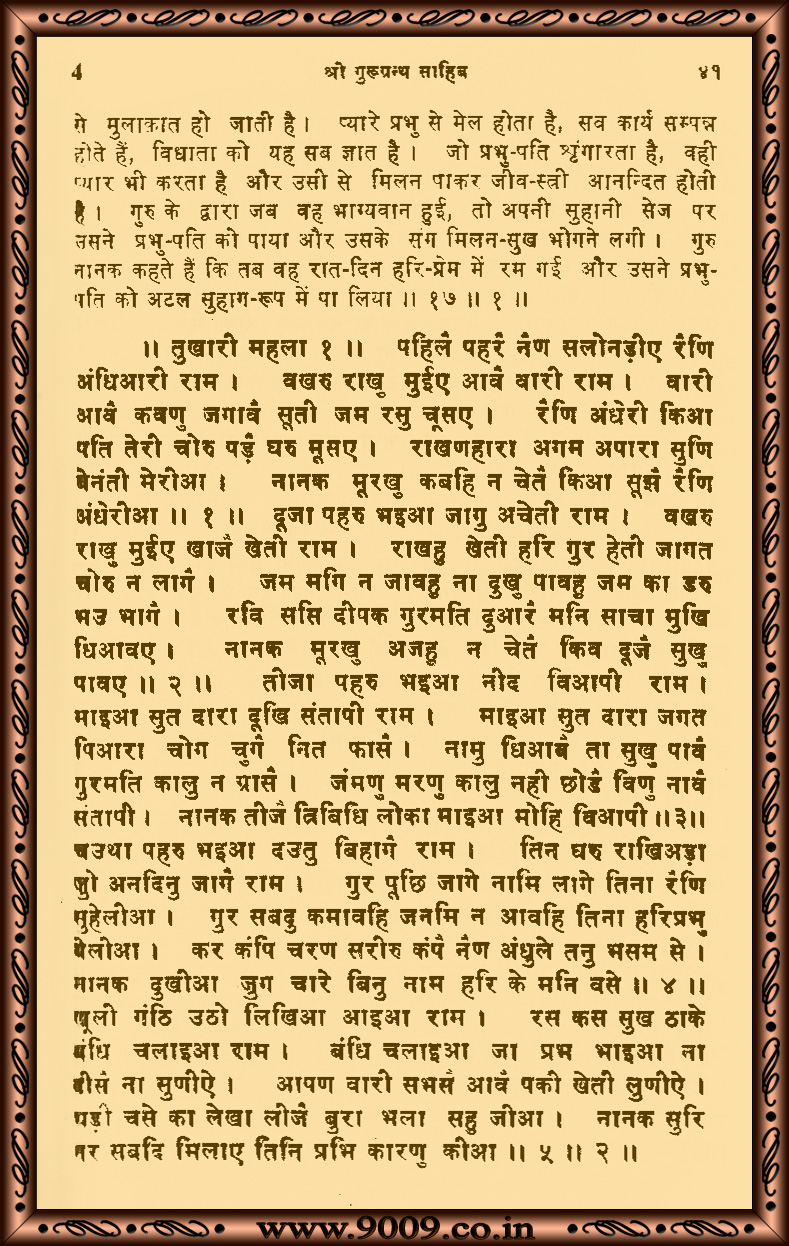 4 श्री गुरूग्रन्थ साहिब ४१
से मुलाक़ात हो जाती है। प्यारे प्रभु से मेल होता है, सब कार्य सम्पन्न
होते हैं, विधाता को यह सब ज्ञात है। जो प्रभु-पति शृंगारता है, वही
प्यार भी करता है और उसी से मिलन पाकर जीव-स्त्री आनन्दित होती
है। गुरु के द्वारा जब वह भाग्यवान हुई, तो अपनी सुहानी सेज पर
उसने प्रभु-पति को पाया और उसके संग मिलन-सुख भोगने लगी। गुरु
नानक कहते हैं कि तब वह रात-दिन हरि-प्रेम में रम गई और उसने प्रभु-
पति को अटल सुहाग-रूप में पा लिया॥ १७॥ १॥
॥ तुखारी महला १॥ पहिलै पहरै नैण सलोनड़ीए रैणि
अंधिआरी राम। वखरु राखु मुईए आवै वारी राम। वारी
आवै कवणु जगावै सूती जम रसु चूसए। रैणि अंधेरी किआ
पति तेरी चोरु पड़ै घरु मूसए। राखणहारा अगम अपारा सुणि
बेनंती मेरीआ। नानक मूरखु कबहि न चेतै किआ सूझै रैणि
अंधेरीआ॥ १॥ दूजा पहरु भइआ जागु अचेती राम। वखरु
राखु मुईए खाजै खेती राम। राखहु खेती हरि गुर हेती जागत
चोरु न लागै। जम मगि न जावहु ना दुखु पावहु जम का डरु
भउ भागै। रवि ससि दीपक गुरमति दुआरै मनि साचा मुखि
धिआवए। नानक मूरखु अजहु न चेतै किव दूजै सुखु
पावए॥ २॥ तीजा पहरु भइआ नीद विआपी राम।
माइआ सुत दारा दूखि संतापी राम। माइआ सुत दारा जगत
पिआरा चोग चुगै नित फासै। नामु धिआवै ता सुखु पावै
गुरमति कालु न ग्रासै। जंमणु मरणु कालु नही छोडै विणु नावै
संतापी। नानक तीजै त्रिबिधि लोका माइआ मोहि विआपी॥३॥
चउथा पहरु भइआ दउतु बिहागै राम। तिन घरु राखिअड़ा
जो अनदिनु जागै राम। गुर पूछि जागे नामि लागे तिना रैणि
सुहेलीआ। गुर सबदु कमावहि जनमि न आवहि तिना हरिप्रभु
बेलीआ। कर कंपि चरण सरीरु कंपै नैण अंधुले तनु भसम से।
नानक दुखीआ जुग चारे बिनु नाम हरि के मनि वसे॥ ४॥
खूली गंठि उठो लिखिआ आइआ राम। रस कस सुख ठाके
बंधि चलाइआ राम। बंधि चलाइआ जा प्रभ भाइआ ना
दीसै ना सुणीऐ। आपण वारी सभसै आवै पकी खेती लुणीऐ।
घड़ी चसे का लेखा लीजै बुरा भला सहु जीआ। नानक सुरि
नर सबदि मिलाए तिनि प्रभि कारणु कीआ॥ ५॥ २॥
www.9009.co.in